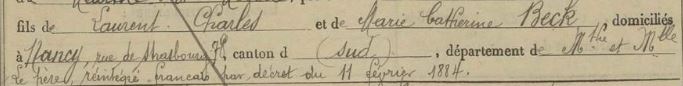 fils de Laurent Charles et de Marie Catherine Beck, domiciliés
à Nancy, rue de Strasbourg 75, canton d (sud), département de Mthe et Mlle
Le père, réintégré français par décret du 11 février 1884.